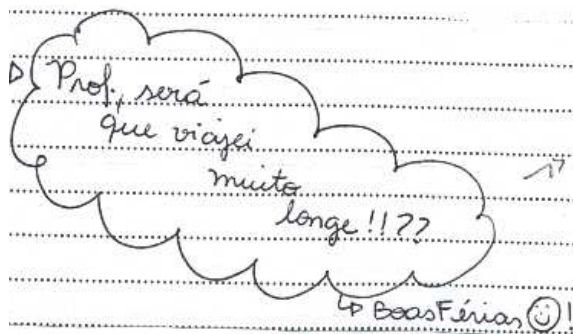 Prof., será
que viajei
muito
longe!!??
↳ Boas Férias ☺!